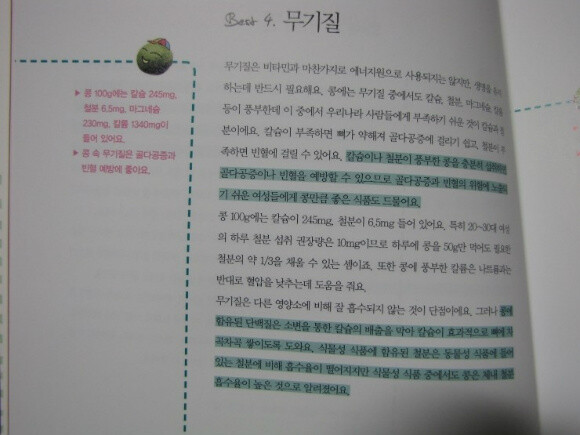 Best 4. 무기질
▶ 콩 100g에는 칼슘 245mg,
철분 6.5mg, 마그네슘
230mg, 칼륨 1340mg이
들어 있어요.
▶ 콩 속 무기질은 골다공증과
빈혈 예방에 좋아요.
무기질은 비타민과 마찬가지로 에너지원으로 사용되지는 않지만, 생명을 유지
하는데 반드시 필요해요. 콩에는 무기질 중에서도 칼슘, 철분, 마그네슘, 칼륨
등이 풍부한데 이 중에서 우리나라 사람들에게 부족하기 쉬운 것이 칼슘과 철
분이에요. 칼슘이 부족하면 뼈가 약해져 골다공증에 걸리기 쉽고, 철분이 부
족하면 빈혈에 걸릴 수 있어요. 칼슘이나 철분이 풍부한 콩을 충분히 섭취하면
골다공증이나 빈혈을 예방할 수 있으므로 골다공증과 빈혈의 위험에 노출되
기 쉬운 여성들에게 콩만큼 좋은 식품도 드물어요.
콩 100g에는 칼슘이 245mg, 철분이 6.5mg 들어 있어요. 특히 20~30대 여성
의 하루 철분 섭취 권장량은 10mg이므로 하루에 콩을 50g만 먹어도 필요한
철분의 약 1/3을 채울 수 있는 셈이죠. 또한 콩에 풍부한 칼륨은 나트륨과는
반대로 혈압을 낮추는데 도움을 줘요.
무기질은 다른 영양소에 비해 잘 흡수되지 않는 것이 단점이에요. 그러나 콩에
함유된 단백질은 소변을 통한 칼슘의 배출을 막아 칼슘이 효과적으로 뼈에 차
곡차곡 쌓이도록 도와요. 식물성 식품에 함유된 철분은 동물성 식품에 들어
있는 철분에 비해 흡수율이 떨어지지만 식물성 식품 중에서도 콩은 체내 철분
흡수율이 높은 것으로 알려졌어요.